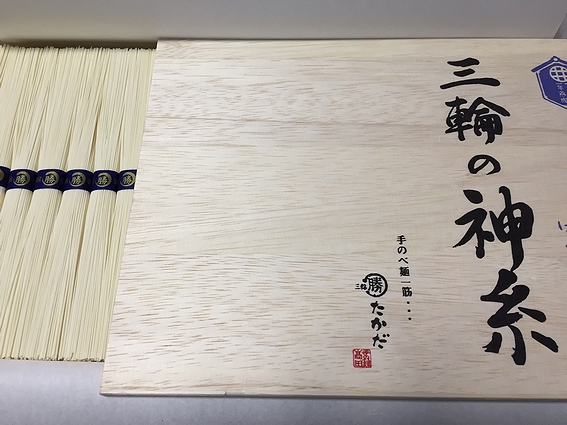 三輪の神糸
手のべ麺一筋・・・
三輪 勝 たかだ
勝
勝
勝
勝
勝